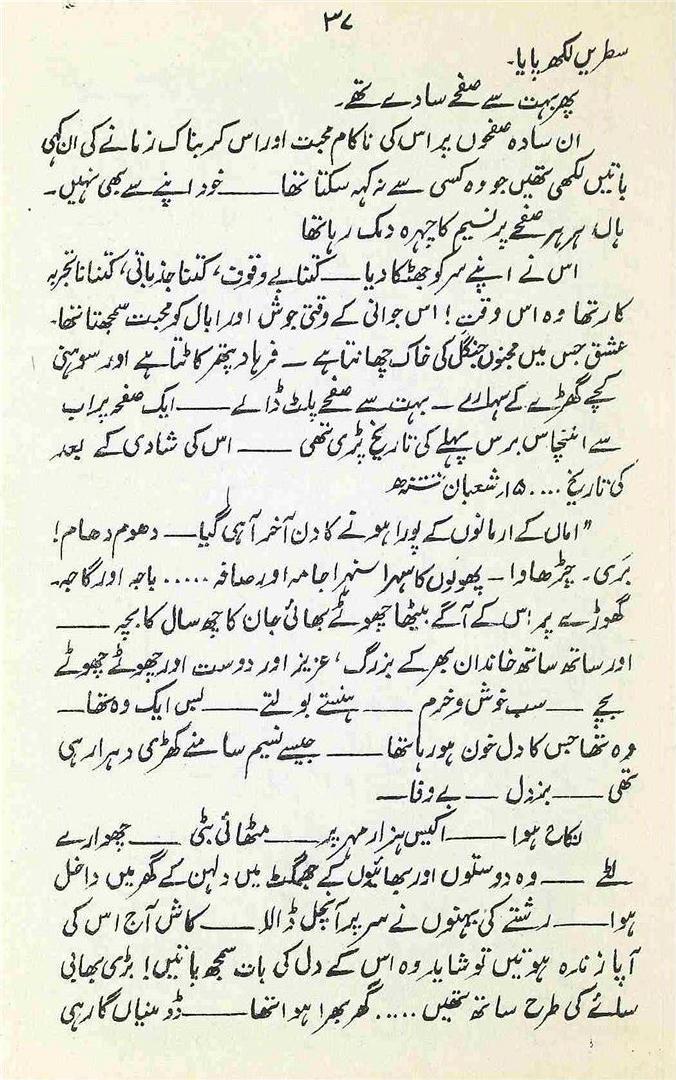 ۳۷
سطریں لکھ پایا۔
پھر بہت سے صفحے سادے تھے۔
ان سادہ صفحوں پر اس کی ناکام محبت اور اس کربناک زمانے کی ان کہی
باتیں لکھی تھیں جو وہ کسی سے نہ کہہ سکتا تھا —— خود اپنے سے بھی نہیں۔
ہاں، ہر ہر صفحے پر نسیم کا چہرہ دمک رہا تھا
اس نے اپنے سر کو جھٹکا دیا — کتنا بے وقوف، کتنا جذباتی، کتنا ناتجربہ
کار تھا وہ اس وقت! اس جوانی کے وقتی جوش اور ابال کو محبت سمجھتا تھا۔
عشق جس میں مجنوں جنگل کی خاک چھانتا ہے — فرہاد پتھر کاٹتا ہے اور سوہنی
کچے گھڑے کے سہارے — بہت سے صفحے پلٹ ڈالے —— ایک صفحہ پر اب
سے انتچاس برس پہلے کی تاریخ پڑی تھی —— اس کی شادی کے بعد
کی تاریخ .... ۱۵ر شعبان
"اماں کے ارمانوں کے پورا ہونے کا دن آخر آہی گیا — دھوم دھام!
بَری۔ چڑھاوا — پھولوں کا سہرا سنہرا جامہ اور صافہ ..... باجہ اور گاجہ۔
گھوڑے پر اس کے آگے بیٹھا چھوٹے بھائی جان کا چھ سال کا بچہ ——
اور ساتھ ساتھ خاندان بھر کے بزرگ، عزیز اور دوست اور چھوٹے چھوٹے
بچے —— سب خوش و خرم —— ہنستے بولتے —— بس ایک وہ تھا —
وہ تھا جس کا دل خون ہو رہا تھا —— جیسے نسیم سامنے کھڑی دہرا رہی
تھی —— بزدل —— بے وفا —
نکاح ہوا —— اکیس ہزار مہر پر —— مٹھائی بٹی —— چھوارے
لٹے —— وہ دوستوں اور بھائیوں کے جھمگٹ میں دلہن کے گھر میں داخل
ہوا —— رشتے کی بہنوں نے سر پر آنچل ڈالا —— کاش آج اس کی
آپا زندہ ہوتیں تو شاید وہ اس کے دل کی بات سمجھ پاتیں! بڑی بھابی
سائے کی طرح ساتھ تھیں ..... گھر بھرا ہوا تھا —— ڈومنیاں گا رہی